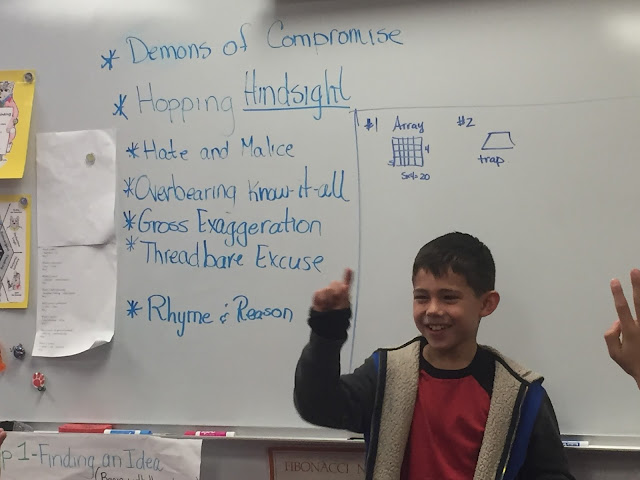 * Demons of Compromise
* Hopping Hindsight
* Hate and Malice
* Overbearing Know-it-all
* Gross Exaggeration
* Threadbare Excuse
* Rhyme & Reason
#1 Array
4
5x4=20
#2
trap
p 1-Finding an Idea
FIBONACCI N